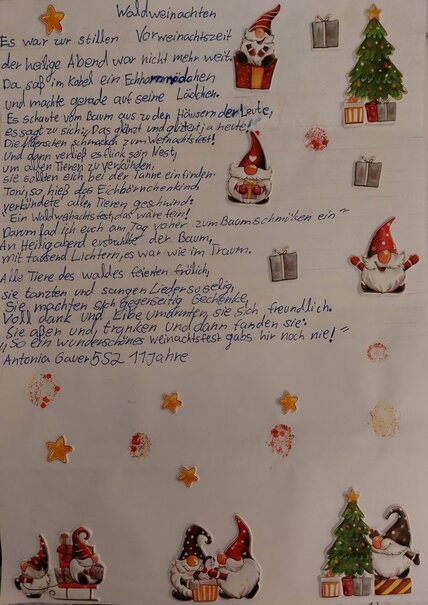 Waldweinachten
Es war zur stillen Vorweinachtszeit
der heilige Abend war nicht mehr weit.
Da saß im Kobel ein Echhornmädchen
und machte gerade auf seine Lädchen.
Es schaute vom Baum aus zu den Häusern der Leute,
es sagt zu sich: „Das glänzt und glitzert ja heute!
Die Menschen schmücken zum Weihnachtsfest!"
Und dann verließ es flink sein Nest,
um allen Tieren zu verkünden,
sie sollten sich bei der Tanne einfinden.
Toni, so hieß das Eichhörnchenkind
verkündete allen Tieren geschwind:
"Ein Waldweihnachtsfest, das wäre fein!
Darum lad ich euch am Tag vorher zum Baumschmüken ein"
An Heiligabend erstrahlte der Baum,
mit tausend Lichtern, es war wie im Traum.
Alle Tiere des waldes feierten frölich,
sie tanzten und sangen Lieder so selig.
Sie machten sich gegenseitig Geschenke,
Voll dank und Liebe umarmten, sie sich freundlich.
Sie aßen und, tranken und dann fanden sie:
„So ein wunderschönes weinachtsfest gabs hir noch nie!"
Antonia Gauer 5S2 11 Jahre